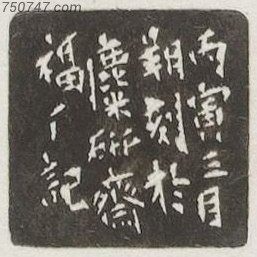 750747.com
丙寅三月
朔刻於
麋研齋
福厂記